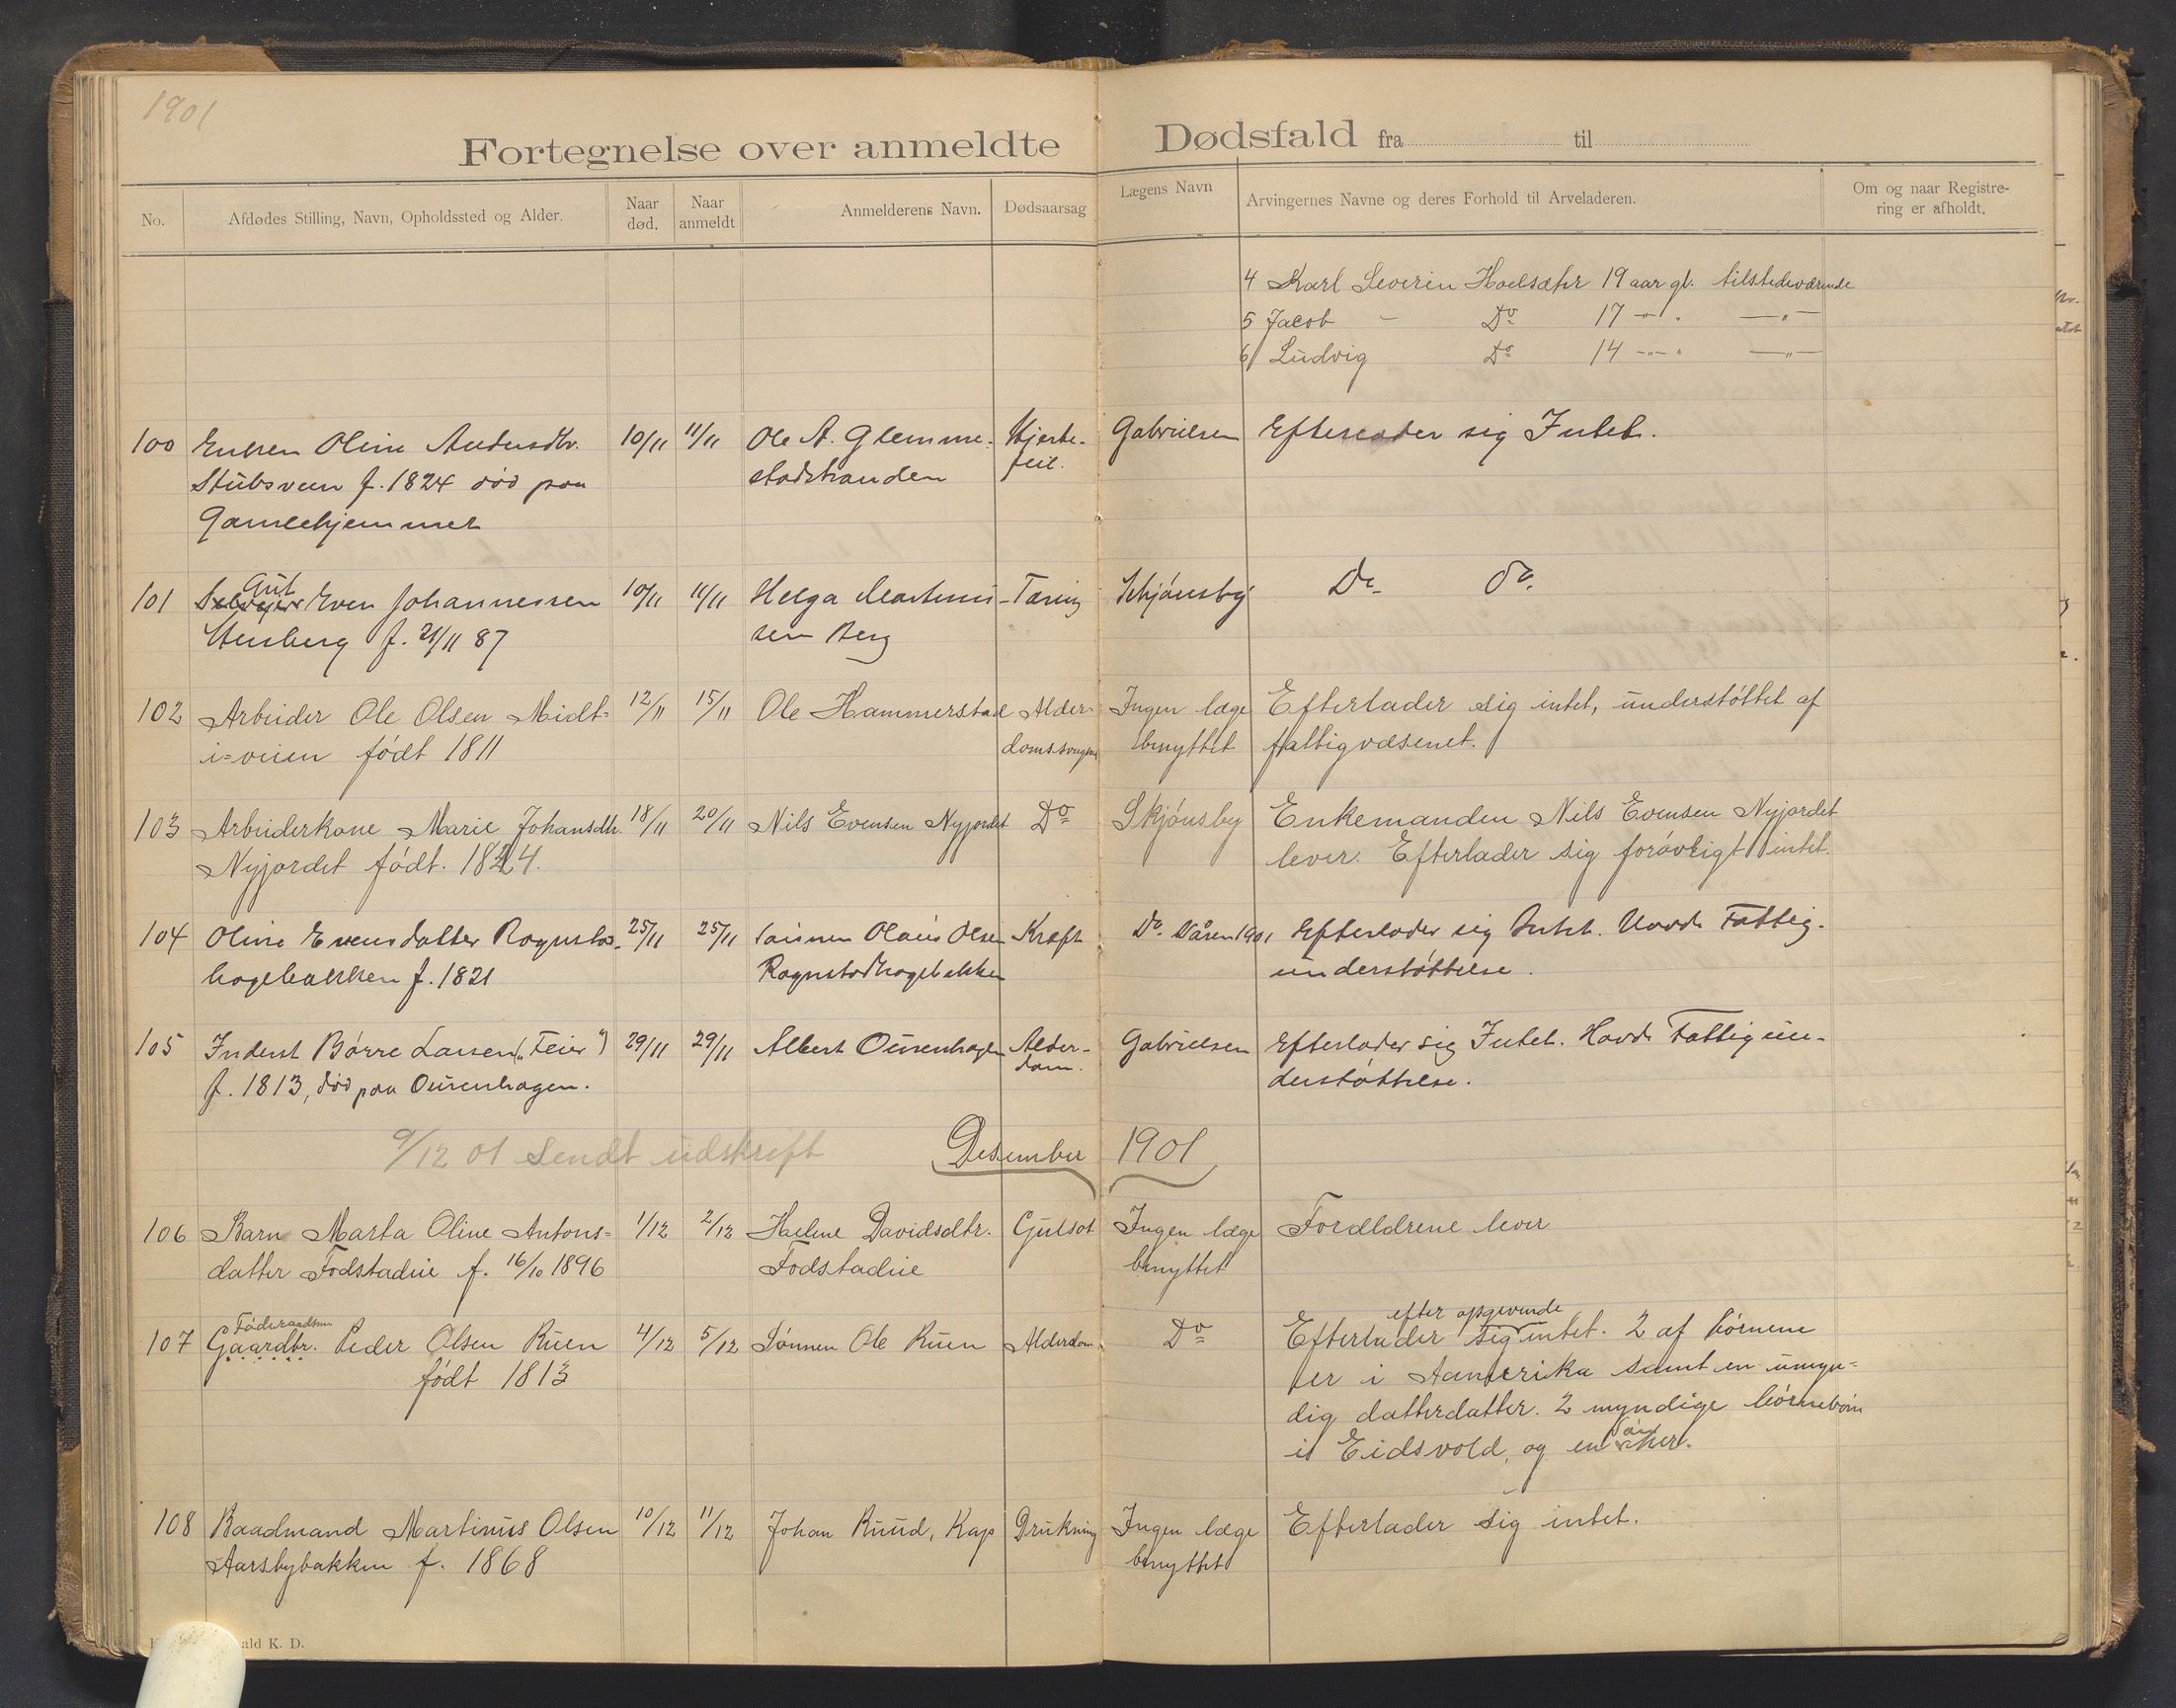 1901
Fortegnelse over anmeldte Dødsfald fra til
No.
Afdødes Stilling, Navn, Opholdssted og Alder.
Naar død.
Naar anmeldt
Anmelderens Navn.
Dødsaarsag
Lægens Navn
Arvingernes Navne og deres Forhold til Arveladeren.
Om og naar Registre-
ring er afholdt.
4 Karl Severin Hoelsæter 19 aar gl. tilstedeværende
5 Jacob - Do 17 -"- -"-
6 Ludvig Do 14 -"- -"-
100 Enken Oline Andersdtr. 10/11 11/11 Ole A. Glemme- Hjerte- Gabrielsen Efterlader sig Intet.
Stubsveen f. 1824 død paa stadstranden feil.
Gamlehjemmet
101 Gut Even Johannessen 10/11 11/11 Helga Martinus- Tæring Schjønsby Do. do.
Stensberg f. 21/11 87 sen Berg
102 Arbeider Ole Olsen Midt- 12/11 15/11 Ole Hammerstad Alder- Ingen læge Efterlader sig intet, understøttet af
i-veien født 1811 domssvaghed benyttet fattigvæsenet.
103 Arbeiderkone Marie Johansdtr. 18/11 20/11 Nils Evensen Nyjordet Do Skjønsby Enkemanden Nils Evensen Nyjordet
Nyjordet født. 1824. lever. Efterlader sig forøvrigt intet.
104 Oline Evensdatter Rognstad- 25/11 25/11 Sønnen Olaus Olsen Kræft Do. Våren 1901 Efterlader sig Intet. Havde Fattig-
hagebakken f. 1821 Rognstadhagebakken understøttelse.
105 Inderst Børre Larsen ("Feier") 29/11 29/11 Albert Ourenhagen Alder- Gabrielsen Efterlader sig Intet. Havde Fattigun-
f. 1813, død paa Ourenhagen. dom. derstøttelse.
9/12 01 Sendt udskrift Desember 1901
106 Barn Marta Oline Antons- 1/12 2/12 Helene Davidsdtr. Gulsot Ingen læge Forældrene lever
datter Fodstadeie f. 16/10 1896 Fodstadeie benyttet
Føderaadsm. efter opgivende
107 Gaardbr. Peder Olsen Ruen 4/12 5/12 Sønnen Ole Ruen Alderdom Do Efterlader sig intet. 2 af børnene
født 1813 er i Aamerika samt en umyn-
dig datterdatter. 2 myndige børnebørn
i Eidsvold, og en søn her.
108 Baadmand Martinus Olsen 10/12 11/12 Johan Ruud, Kap Drukning Ingen læge Efterlader sig intet.
Aarsbybakken f. 1868 benyttet
ald K. D.